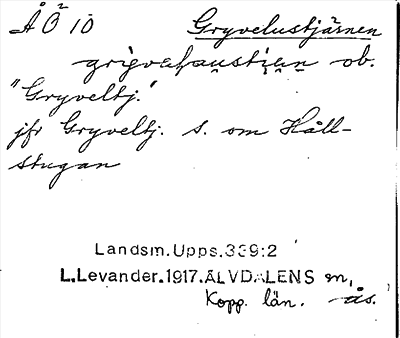 ÅÖ² 10 Gryvelustjärnen
ob.
"Gryveltj."
jfr Gryveltj. s. om Håll-
stugan
Landsm. Upps. 339:2
L. Levander. 1917. ÄLVDALENS sn,
Kopp. län. ås.